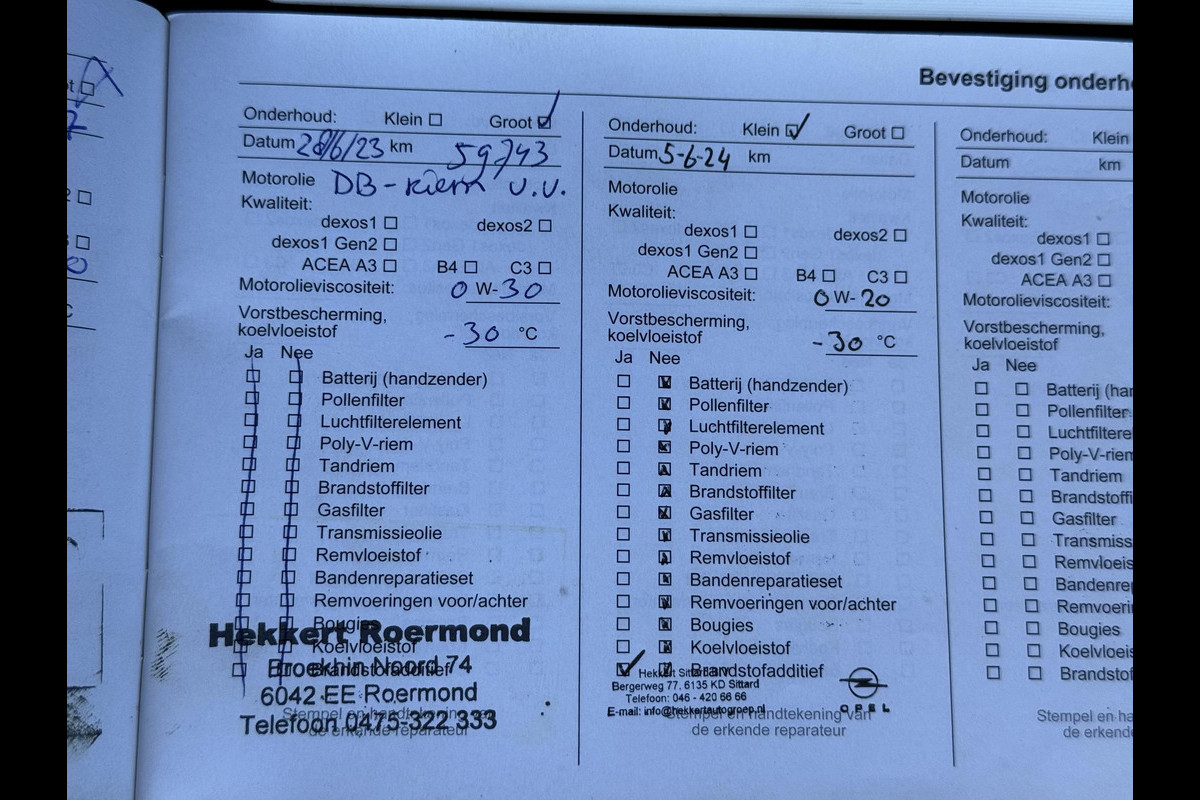 Bevestiging onderh
Onderhoud: Klein ☐ Groot ☑
Datum 28/6/23 km 59743
Motorolie DB-riem v.v.
Kwaliteit:
dexos1 ☐ dexos2 ☐
dexos1 Gen2 ☐
ACEA A3 ☐ B4 ☐ C3 ☐
Motorolieviscositeit: 0 W-30
Vorstbescherming,
koelvloeistof -30 °C
Ja Nee
☐ ☐ Batterij (handzender)
☐ ☐ Pollenfilter
☐ ☐ Luchtfilterelement
☐ ☐ Poly-V-riem
☐ ☐ Tandriem
☐ ☐ Brandstoffilter
☐ ☐ Gasfilter
☐ ☐ Transmissieolie
☐ ☐ Remvloeistof
☐ ☐ Bandenreparatieset
☐ ☐ Remvoeringen voor/achter
☐ ☐ Bougies
☐ ☐ Koelvloeistof
☐ ☐ Brandstofadditief
Hekkert Roermond
Broekhin Noord 74
6042 EE Roermond
Telefoon 0475-322 333
Stempel en handtekening van
de erkende reparateur
Onderhoud: Klein ☑ Groot ☐
Datum 5-6-24 km
Motorolie
Kwaliteit:
dexos1 ☐ dexos2 ☐
dexos1 Gen2 ☐
ACEA A3 ☐ B4 ☐ C3 ☐
Motorolieviscositeit: 0 W-20
Vorstbescherming,
koelvloeistof -30 °C
Ja Nee
☐ ☑ Batterij (handzender)
☐ ☑ Pollenfilter
☐ ☑ Luchtfilterelement
☐ ☑ Poly-V-riem
☐ ☑ Tandriem
☐ ☑ Brandstoffilter
☐ ☑ Gasfilter
☐ ☑ Transmissieolie
☐ ☑ Remvloeistof
☐ ☑ Bandenreparatieset
☐ ☑ Remvoeringen voor/achter
☐ ☑ Bougies
☐ ☑ Koelvloeistof
☑ ☑ Brandstofadditief
Hekkert Sittard
Bergerweg 77. 6135 KD Sittard
Telefoon: 046 - 420 66 66
E-mail: info@hekkertautogroep.nl
OPEL
Stempel en handtekening van
de erkende reparateur
Onderhoud: Klein
Datum km
Motorolie
Kwaliteit:
dexos1 ☐
dexos1 Gen2 ☐
ACEA A3 ☐
Motorolieviscositeit:
Vorstbescherming,
koelvloeistof
Ja Nee
☐ ☐ Batterij (han
☐ ☐ Pollenfilter
☐ ☐ Luchtfiltere
☐ ☐ Poly-V-riem
☐ ☐ Tandriem
☐ ☐ Brandstoffi
☐ ☐ Gasfilter
☐ ☐ Transmiss
☐ ☐ Remvloeis
☐ ☐ Bandenrep
☐ ☐ Remvoerin
☐ ☐ Bougies
☐ ☐ Koelvloeis
☐ ☐ Brandstof
Stempel en ha
de erkende